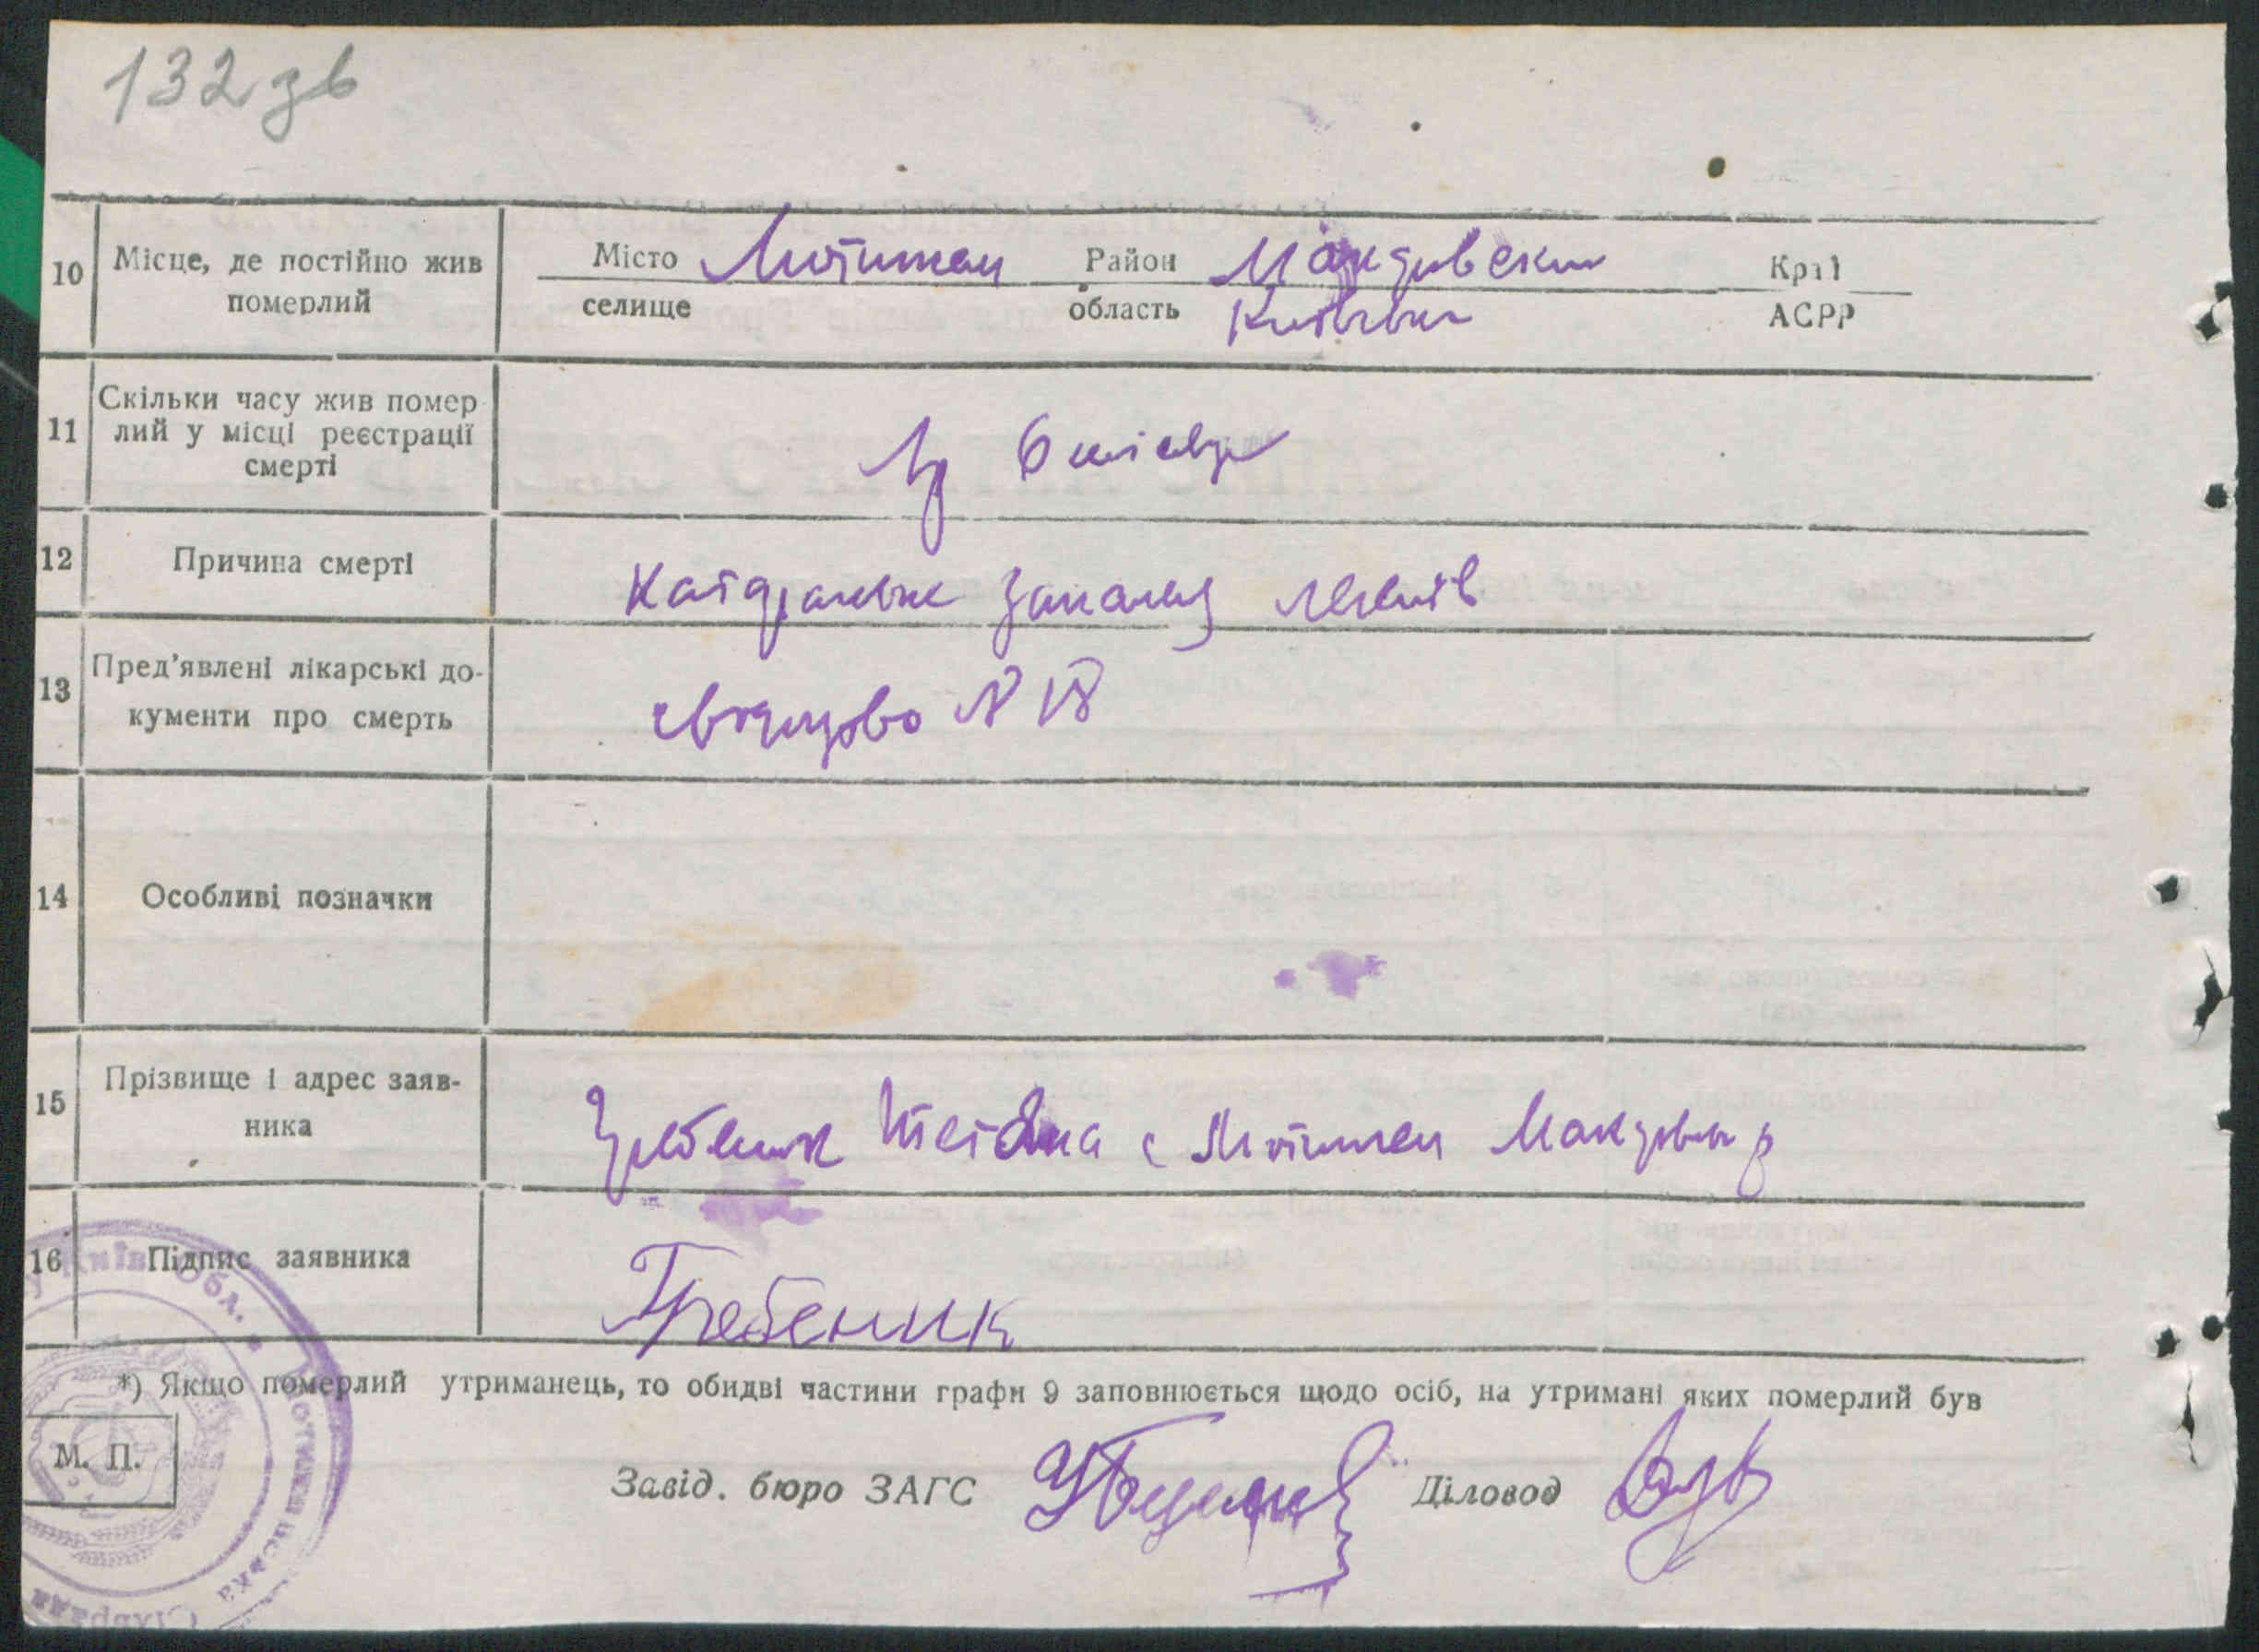 132 зв
10 Місце, де постійно жив померлий Місто Мотижен Район Макаровский Край
селище область Київська АСРР
11 Скільки часу жив помер
лий у місці реєстрації
смерті
6
12 Причина смерті легенів
13 Пред'явлені лікарські до-
кументи про смерть
№ 18
14 Особливі позначки
15 Прізвище і адрес заяв-
ника
Гребеник с Мотижен Макарівськ р
16 Підпис заявника Гребеник
*) Якщо померлий утриманець, то обидві частини графи 9 заповнюється щодо осіб, на утримані яких померлий був
М. П.
Завід. бюро ЗАГС Діловод